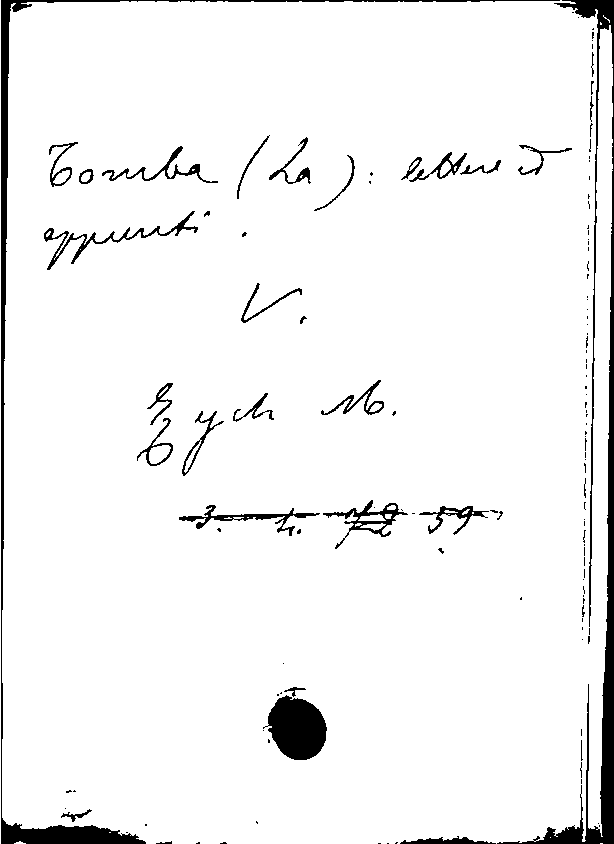 Tomba (La): lettere ed
appunti.
V.
Eych M.
3. 4. 59